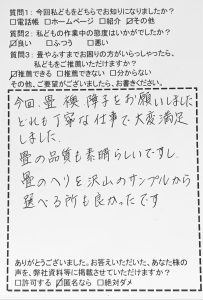 質問1：今回私どもをどちらでお知りになりましたか？
□電話帳 □ホームページ □紹介 ☑その他
質問2：私どもの作業中の態度はいかがでしたか？
☑良い □ふつう □悪い
質問3：畳やふすまでお困りの方がいらっしゃったら、
私どもをご推薦いただけますか？
☑推薦できる □推薦できない □分からない
その他、ご要望がございましたら、お書きください。
今回、畳 襖 障子をお願いしました
どれも丁寧な仕事で大変満足
しました。
畳の品質も素晴らしいですし、
畳のヘリを沢山のサンプルから
選べる所も良かったです
ありがとうございました。お答えいただいた、あなた様の
声を、弊社資料等に掲載させていただけますか？
□許可する ☑匿名なら □絶対ダメ